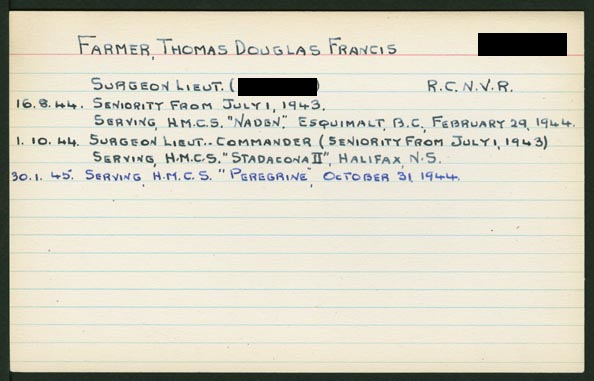 FARMER, THOMAS DOUGLAS FRANCIS
SURGEON LIEUT. ( ) R.C.N.V.R.
16.8.44. SENIORITY FROM JULY 1, 1943.
SERVING, H.M.C.S. "NADEN", ESQUIMALT, B.C., FEBRUARY 29, 1944.
1.10.44. SURGEON LIEUT.-COMMANDER (SENIORITY FROM JULY 1, 1943)
SERVING, H.M.C.S. "STADACONA II", HALIFAX, N.S.
30.1.45. SERVING, H.M.C.S. "PEREGRINE", OCTOBER 31, 1944.